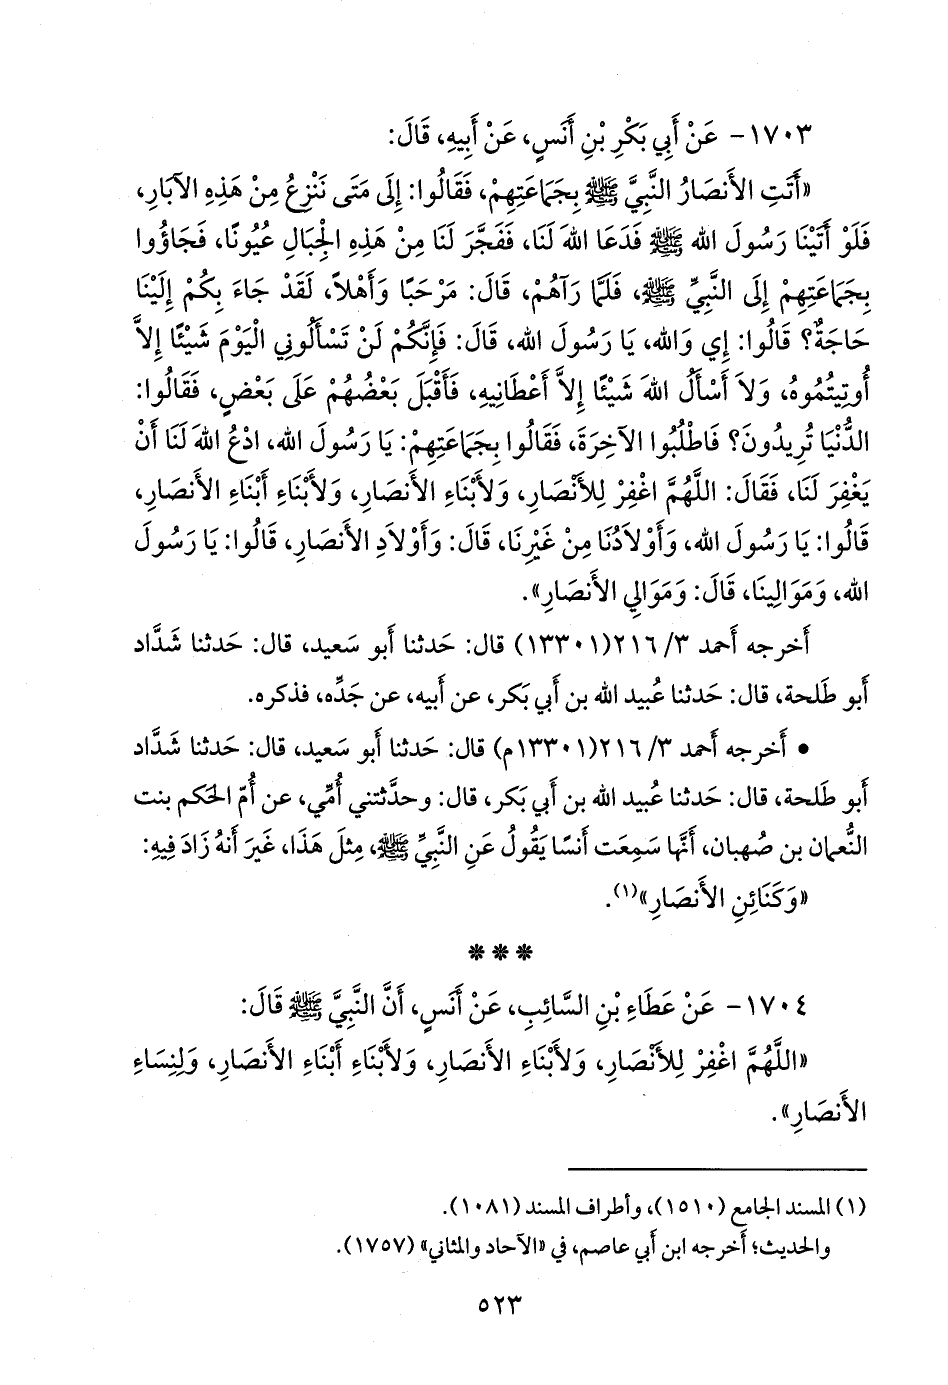 ١٧٠٣- عَنْ أَبِي بَكْرِ بْنِ أَنَسٍ، عَنْ أَبِيهِ، قَالَ:
«أَتَتِ الأَنصَارُ النَّبِيَّ ﷺ بِجَمَاعَتِهِمْ، فَقَالُوا: إِلَى مَتَى نَنْزِعُ مِنْ هَذِهِ الآبَارِ،
فَلَوْ أَتَيْنَا رَسُولَ الله ﷺ فَدَعَا اللهَ لَنَا، فَفَجَّرَ لَنَا مِنْ هَذِهِ الْجِبَالِ عُيُونًا، فَجَاؤُوا
بِجَمَاعَتِهِمْ إِلَى النَّبِيِّ ﷺ، فَلَمَّا رَآهُمْ، قَالَ: مَرْحَبًا وَأَهْلاً، لَقَدْ جَاءَ بِكُمْ إِلَيْنَا
حَاجَةٌ؟ قَالُوا: إِي وَالله، يَا رَسُولَ الله، قَالَ: فَإِنَّكُمْ لَنْ تَسْأَلُونِي الْيَوْمَ شَيْئًا إِلاَّ
أُوتِيتُمُوهُ، وَلاَ أَسْأَلُ اللهَ شَيْئًا إِلاَّ أَعْطَانِيهِ، فَأَقْبَلَ بَعْضُهُمْ عَلَى بَعْضٍ، فَقَالُوا:
الدُّنْيَا تُرِيدُونَ؟ فَاطْلُبُوا الآخِرَةَ، فَقَالُوا بِجَمَاعَتِهِمْ: يَا رَسُولَ الله، ادْعُ اللهَ لَنَا أَنْ
يَغْفِرَ لَنَا، فَقَالَ: اللَّهُمَّ اغْفِرْ لِلأَنْصَارِ، وَلأَبْنَاءِ الأَنصَارِ، وَلأَبْنَاءِ أَبْنَاءِ الأَنصَارِ،
قَالُوا: يَا رَسُولَ الله، وَأَوْلاَدُنَا مِنْ غَيْرِنَا، قَالَ: وَأَوْلاَدِ الأَنصَارِ، قَالُوا: يَا رَسُولَ
الله، وَمَوَالِينَا، قَالَ: وَمَوَالِي الأَنصَارِ».
أَخرجه أَحمد ٣/ ٢١٦(١٣٣٠١) قال: حَدثنا أَبو سَعيد، قال: حَدثنا شَدَّاد
أَبو طَلحة، قال: حَدثنا عُبيد الله بن أَبي بَكر، عن أَبيه، عن جَدِّه، فذكره.
• أَخرجه أَحمد ٣/ ٢١٦(١٣٣٠١م) قال: حَدثنا أَبو سَعيد، قال: حَدثنا شَدَّاد
أَبو طَلحة، قال: حَدثنا عُبيد الله بن أَبي بَكر، قال: وحدَّثتني أُمِّي، عن أُمّ الحَكم بنت
النُّعمان بن صُهبان، أَنَّها سَمِعَت أَنسًا يَقُولُ عَنِ النَّبِيِّ ﷺ، مِثلَ هَذَا، غَيرَ أَنهُ زَادَ فِيهِ:
«وَكَنَائِنِ الأَنصَارِ»(١).
* * *
١٧٠٤- عَنْ عَطَاءِ بْنِ السَّائِبِ، عَنْ أَنَسٍ، أَنَّ النَّبِيَّ ﷺ قَالَ:
«اللَّهُمَّ اغْفِرْ لِلأَنْصَارِ، وَلأَبْنَاءِ الأَنصَارِ، وَلأَبْنَاءِ أَبْنَاءِ الأَنصَارِ، وَلِنِسَاءِ
الأَنصَارِ».
(١) المسند الجامع (١٥١٠)، وأطراف المسند (١٠٨١).
والحديث؛ أَخرجه ابن أَبي عاصم، في «الآحاد والمثاني» (١٧٥٧).
٥٢٣